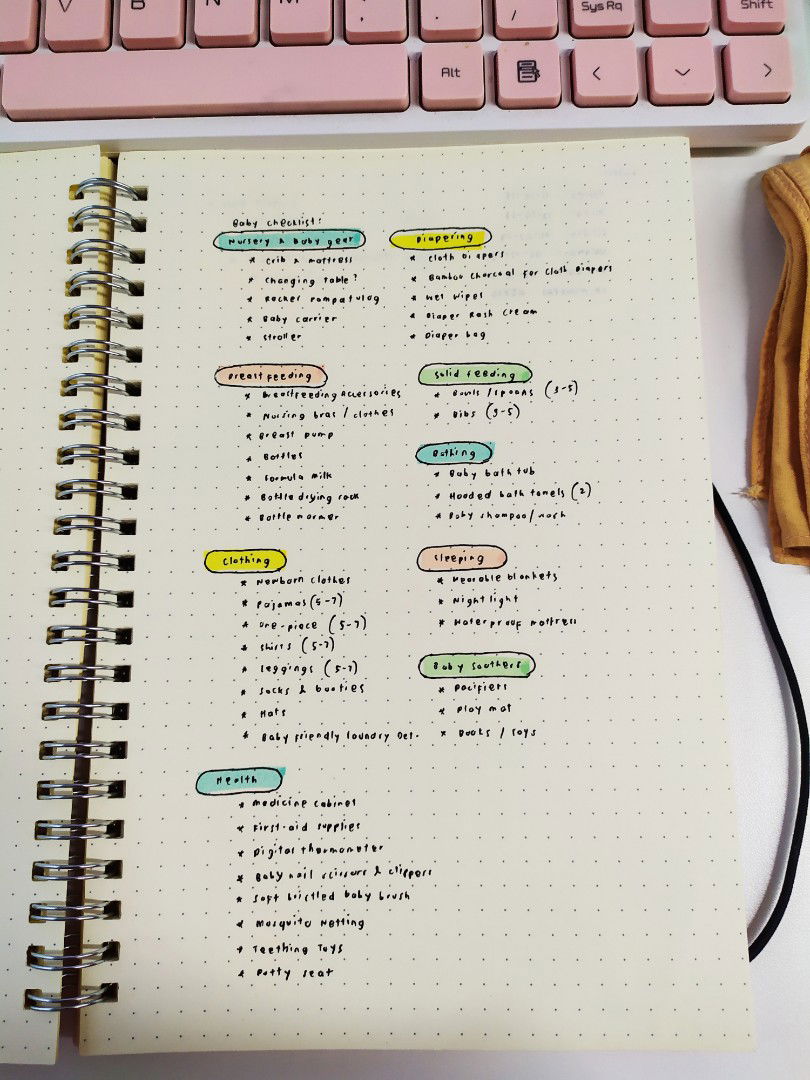 V B N M , . / Sys Rq Shift
Alt
Baby checklist:
Nursery & baby gear
* Crib & mattress
* Changing table?
* Rocker pampatulog
* Baby carrier
* Stroller
Diapering
* Cloth Diapers
* Bamboo Charcoal for Cloth Diapers
* Wet Wipes
* Diaper Rash Cream
* Diaper bag
Breastfeeding
* Breastfeeding Accessories
* Nursing bras / clothes
* Breast pump
* Bottles
* Formula milk
* Bottle drying rack
* Bottle warmer
Solid feeding
* Bowls / spoons (3-5)
* Bibs (3-5)
Bathing
* Baby bath tub
* Hooded bath towels (2)
* Baby shampoo/wash
Clothing
* Newborn clothes
* Pajamas (5-7)
* One-piece (5-7)
* Shirts (5-7)
* Leggings (5-7)
* Socks & booties
* Hats
* Baby friendly laundry Det.
Sleeping
* Wearable blankets
* Night light
* Waterproof mattress
Baby Soothers
* Pacifiers
* Play mat
* Books / Toys
Health
* Medicine cabinet
* First-aid supplies
* Digital thermometer
* Baby nail scissors & clippers
* Soft bristled baby brush
* Mosquito Netting
* Teething Toys
* Potty seat